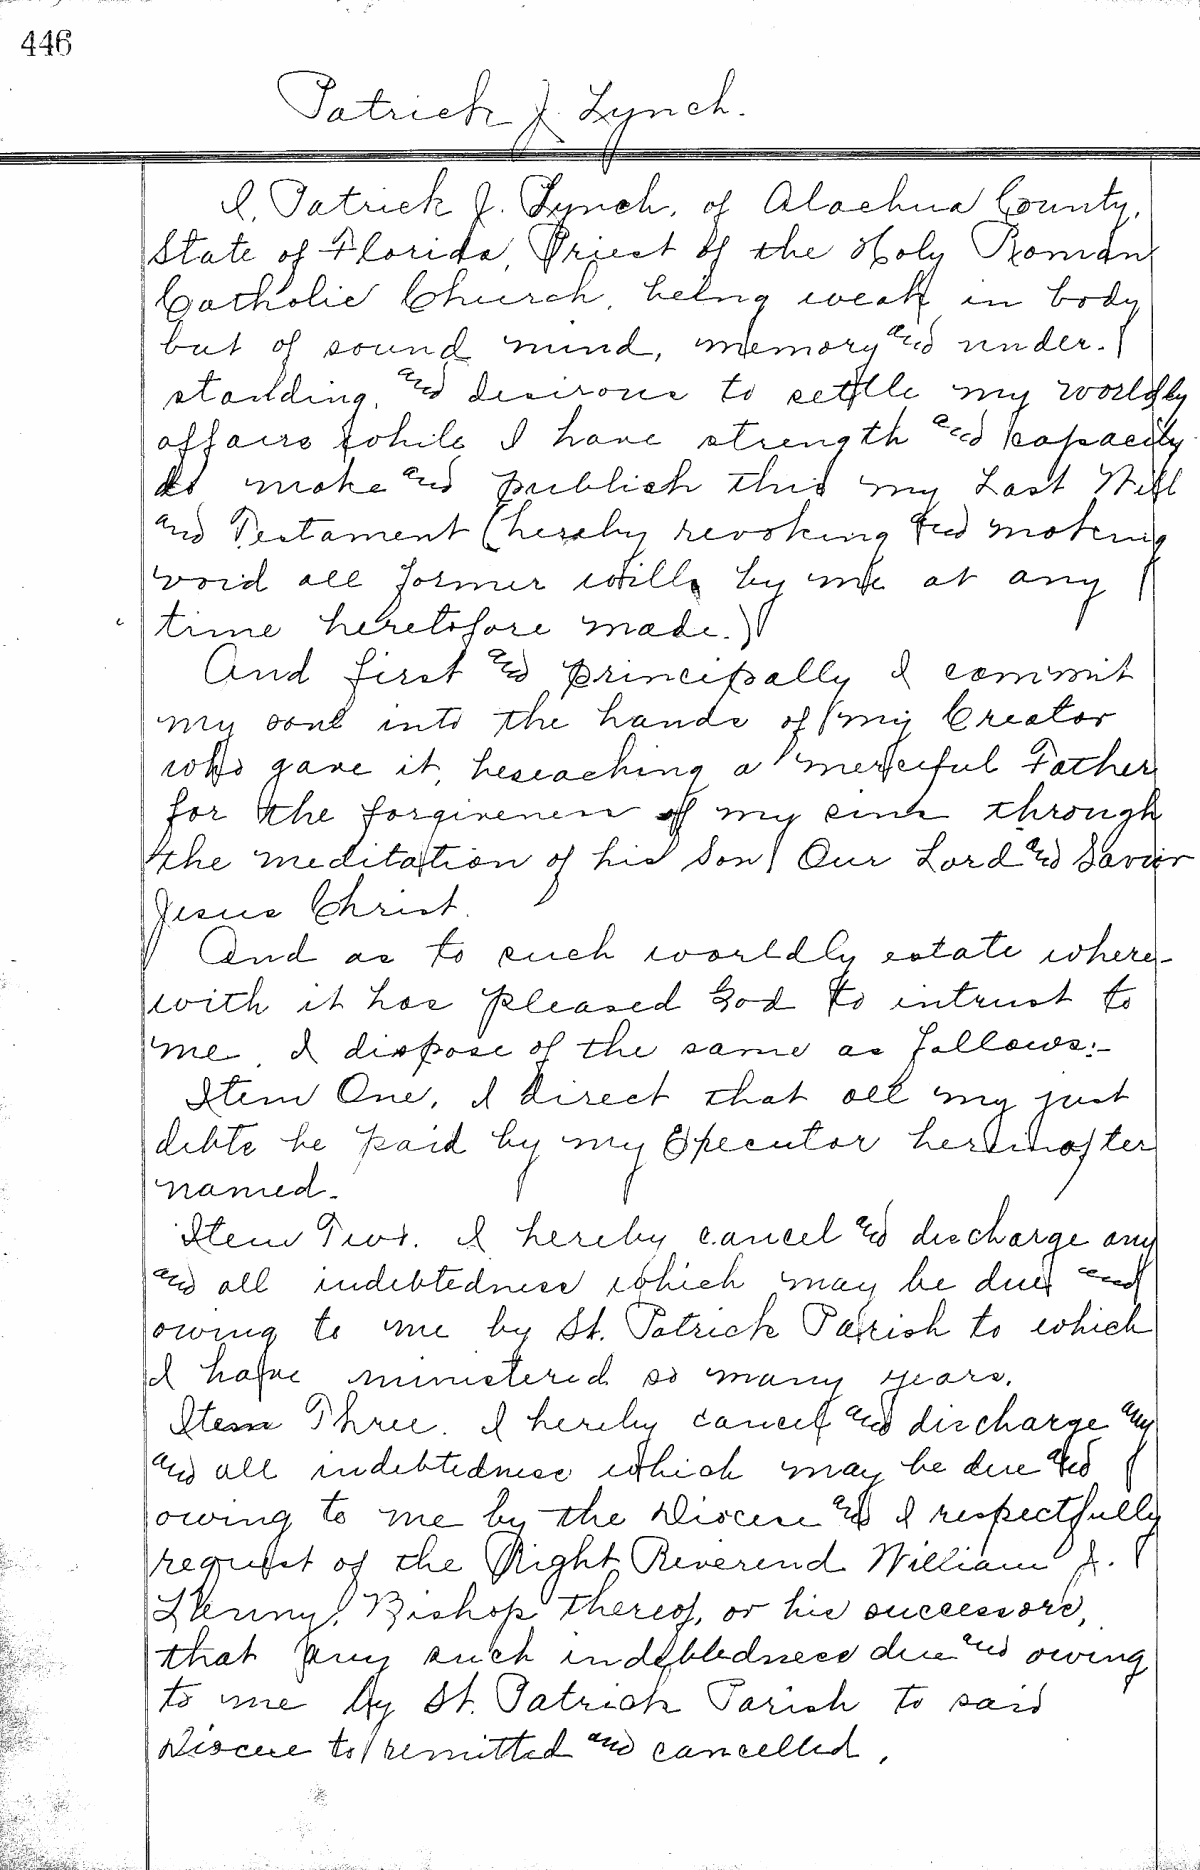 446
Patrick J. Lynch.
I, Patrick J. Lynch, of Alachua County,
State of Florida, Priest of the Holy Roman
Catholic Church, being weak in body
but of sound mind, memory and under-
standing, and desirous to settle my worldly
affairs while I have strength and capacity
do make and publish this my Last Will
and Testament (hereby revoking and making
void all former wills by me at any
time heretofore made.)
And first and principally I commit
my soul into the hands of my Creator
who gave it, beseaching a merciful Father
for the forgiveness of my sins through
the meditation of his Son Our Lord and Savior
Jesus Christ.
And as to such worldly estate where-
with it has pleased God to intrust to
me, I dispose of the same as follows:-
Item One, I direct that all my just
debts be paid by my Executor hereinafter
named.
Item Two. I hereby cancel and discharge any
and all indebtedness which may be due and
owing to me by St. Patrick Parish to which
I have ministered so many years.
Item Three. I hereby cancel and discharge any
and all indebtedness which may be due and
owing to me by the Diocese and I respectfully
request of the Right Reverend William J.
Kenny, Bishop thereof, or his successors,
that any such indebtedness due and owing
to me by St. Patrick Parish to said
Diocese to remitted and cancelled.